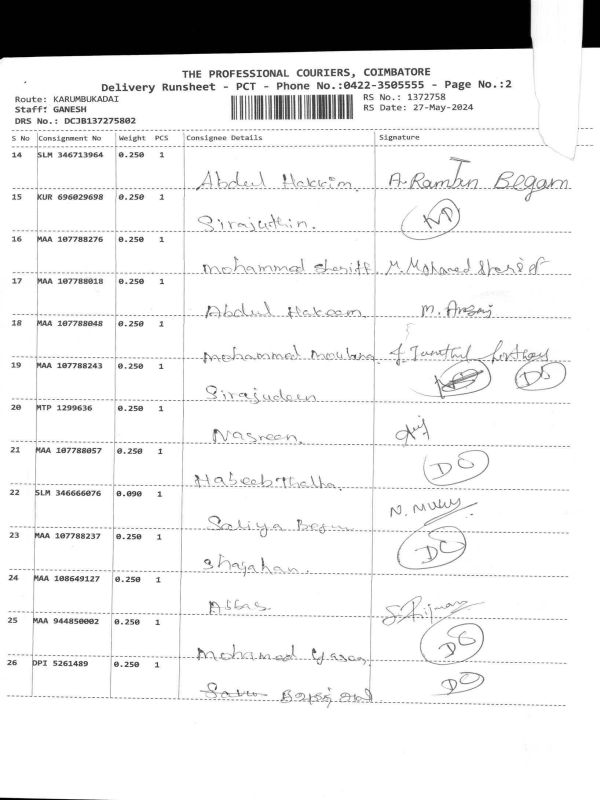 THE PROFESSIONAL COURIERS, COIMBATORE
Delivery Runsheet - PCT - Phone No.:0422-3505555 - Page No.:2
Route: KARUMBUKADAI RS No.: 1372758
Staff: GANESH RS Date: 27-May-2024
DRS No.: DCJB137275802
S No Consignment No Weight PCS Consignee Details Signature
14 SLM 346713964 0.250 1
Abdul Hakkim. A. Ramtan Begam
15 KUR 696029698 0.250 1
Sirajuthin.
16 MAA 107788276 0.250 1
Mohammed Sheriff M. Mohamed Sheriff
17 MAA 107788018 0.250 1
Abdul Hakeem M. Ansari
18 MAA 107788048 0.250 1
Mohammed
19 MAA 107788243 0.250 1 DS
Sirajudeen
20 MTP 1299636 0.250 1
Nasreen.
21 MAA 107788057 0.250 1 DS
Habeebthalha.
22 SLM 346666076 0.090 1
Saliya Begum N.
23 MAA 107788237 0.250 1 DS
Shagahan.
24 MAA 108649127 0.250 1
Abbas.
25 MAA 944850002 0.250 1 DS
Mohamed
26 DPI 5261489 0.250 1 DS